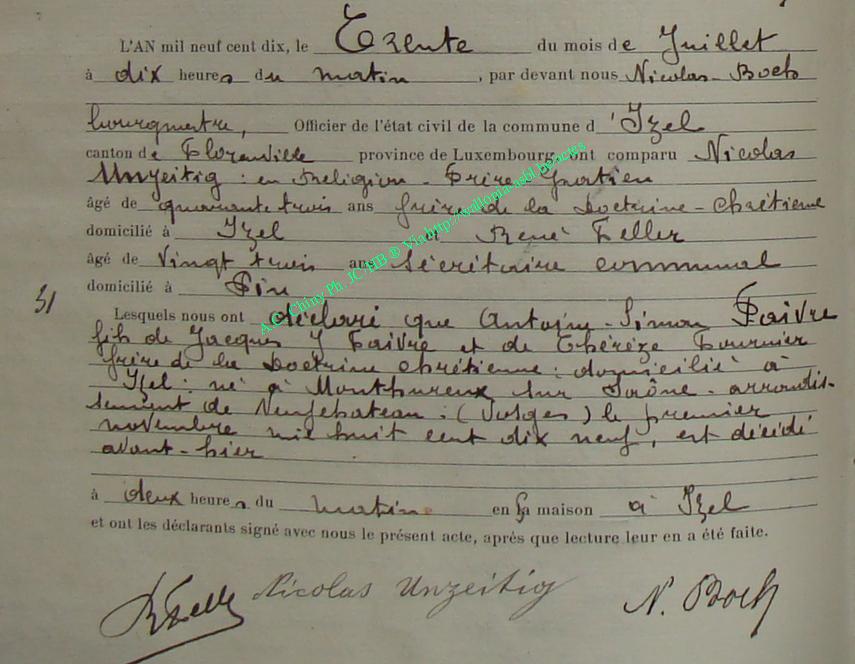 L'AN mil neuf cent dix, le Trente du mois de Juillet
à dix heures du matin, par devant nous Nicolas Boch
bourgmestre, Officier de l'état civil de la commune d'Izel
canton de Florenville province de Luxembourg, ont comparu Nicolas
Unzeitig : en Religion - Frère Gratien
âgé de quarante trois ans frère de la Doctrine-Chrétienne
domicilié à Izel et René Feller
âgé de Vingt trois ans Sécrétaire communal
domicilié à Pin
31
Lesquels nous ont déclaré que Antoine-Simon Faivre
fils de Jacques J Faivre et de Thérèze Fournier
frère de la Doctrine chrétienne : domicilié à
Izel : né à Monthureux sur Saône - arrondis-
sement de Neufchateau : (Vosges) le premier
novembre mil huit cent dix neuf, est décédé
avant-hier
à deux heures du matin en sa maison à Izel
et ont les déclarants signé avec nous le présent acte, après que lecture leur en a été faite.
RFeller Nicolas Unzeitig N. Boch
A.E. Chiny Ph. JC/HB ® Via http://wallonia.asbl.be/actes